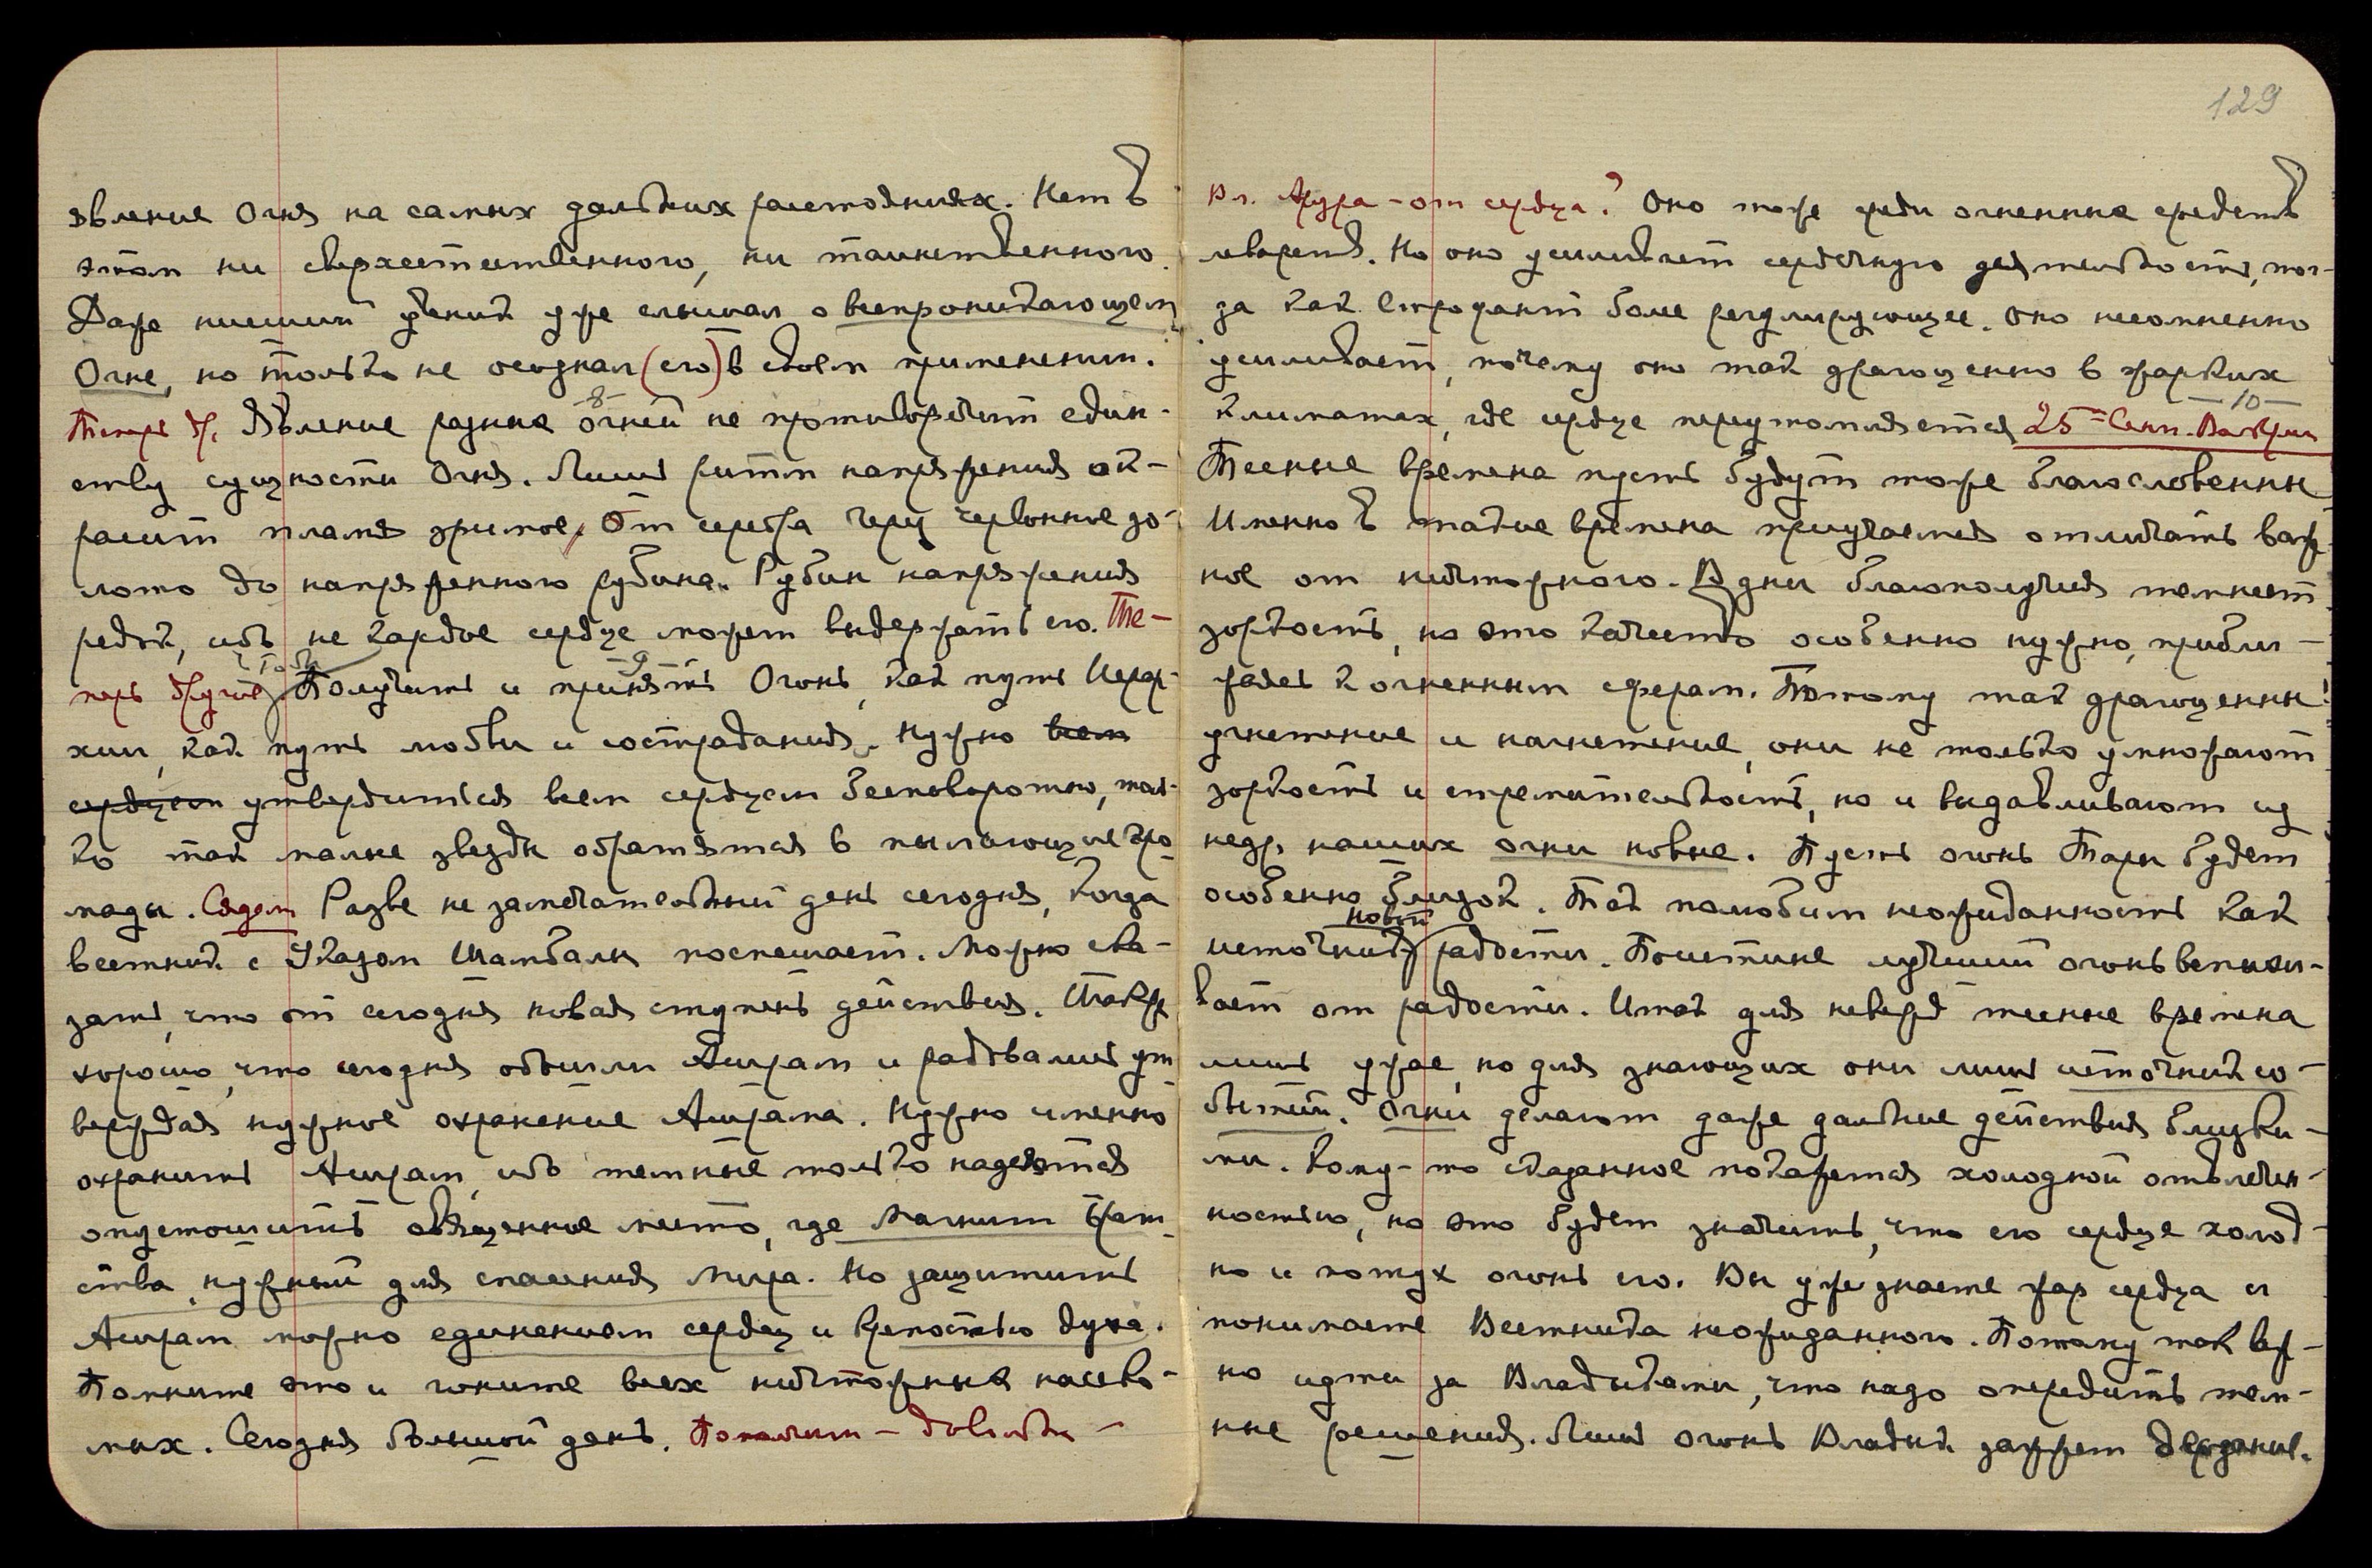 явление Огня на самых дальних расстояниях. Нет в
этом ни сверхестественного, ни таинственного.
Даже низший ученик уже слышал о всепроникающем
Огне, но только не осознал (его) в своем применении.
-8-
Теперь др. Явление разных огней не противоречит един-
ству сущности Огня. Лишь ритм напряжения ок-
расит пламя зримое. От серебра через червонное зо-
лото до напряженного рубина. Рубин напряжения
редок, ибо не каждое сердце может выдержать его. Те-
чтобы -9-
перь другое, Получить и принять Огонь, как путь Иерар-
хии, как путь любви и сострадания, нужно всем
сердцем утвердиться всем сердцем бесповоротно, толь-
ко так малые звезды обратятся в пылающие гро-
мады. Сядем Разве не замечательный день сегодня, когда
вестник с Указом Шамбалы поспешает. Можно ска-
зать, что от сегодня новая ступень действия. Также
хорошо, что сегодня обошли Ашрам и радовались ут
верждая нужное охранение Ашрама. Нужно именно
охранить Ашрам, ибо темные только надеются
опустошить освященное место, где Магнит Брат-
ства, нужный для спасения Мира. Но защитить
Ашрам можно единением сердец и крепостью духа.
Помните это и гоните всех ничтожных насеко-
мых. Сегодня большой день. Помолчим - довольно -
129
Вл. Арура - от сердца? Оно тоже среди огненных средств
лекарств. Но оно усиливает сердечную деятельность, тог-
да как Строфант более регулирующее. Оно несомненно
усиливает, почему оно так драгоценно в жарких
-10-
климатах, где сердце переутомляется 25 = Сент. Вторн
Тесные времена пусть будут тоже благословенны
Именно в такие времена приучаемся отличать важ
ное от ничтожного. В дни благополучия темнеет
зоркость, но это качество особенно нужно, прибли-
жаясь к огненным сферам. Потому так драгоценны
угнетение и нагнетение, они не только умножают
зоркость и стремительность, но и выдавливают из
недр наших огни новые. Пусть огонь Тары будет
особенно близок. Так полюбим неожиданность как
новой
источник радости. Поистине лучший огонь вспыхи-
вает от радости. Итак для невежд тесные времена
лишь ужас, но для знающих они лишь источник со-
бытий. Огни делают даже дальние действия близки-
ми. Кому-то сказанное покажется холодной отвлечен-
ностью, но это будет значить, что его сердце холод-
но и потух огонь его. Вы уже знаете жар сердца и
понимаете Вестника неожиданного. Потому так важ-
но идти за Владыками, что надо опередить тем-
ные решения. Лишь огонь Владык зажжет дерзание.